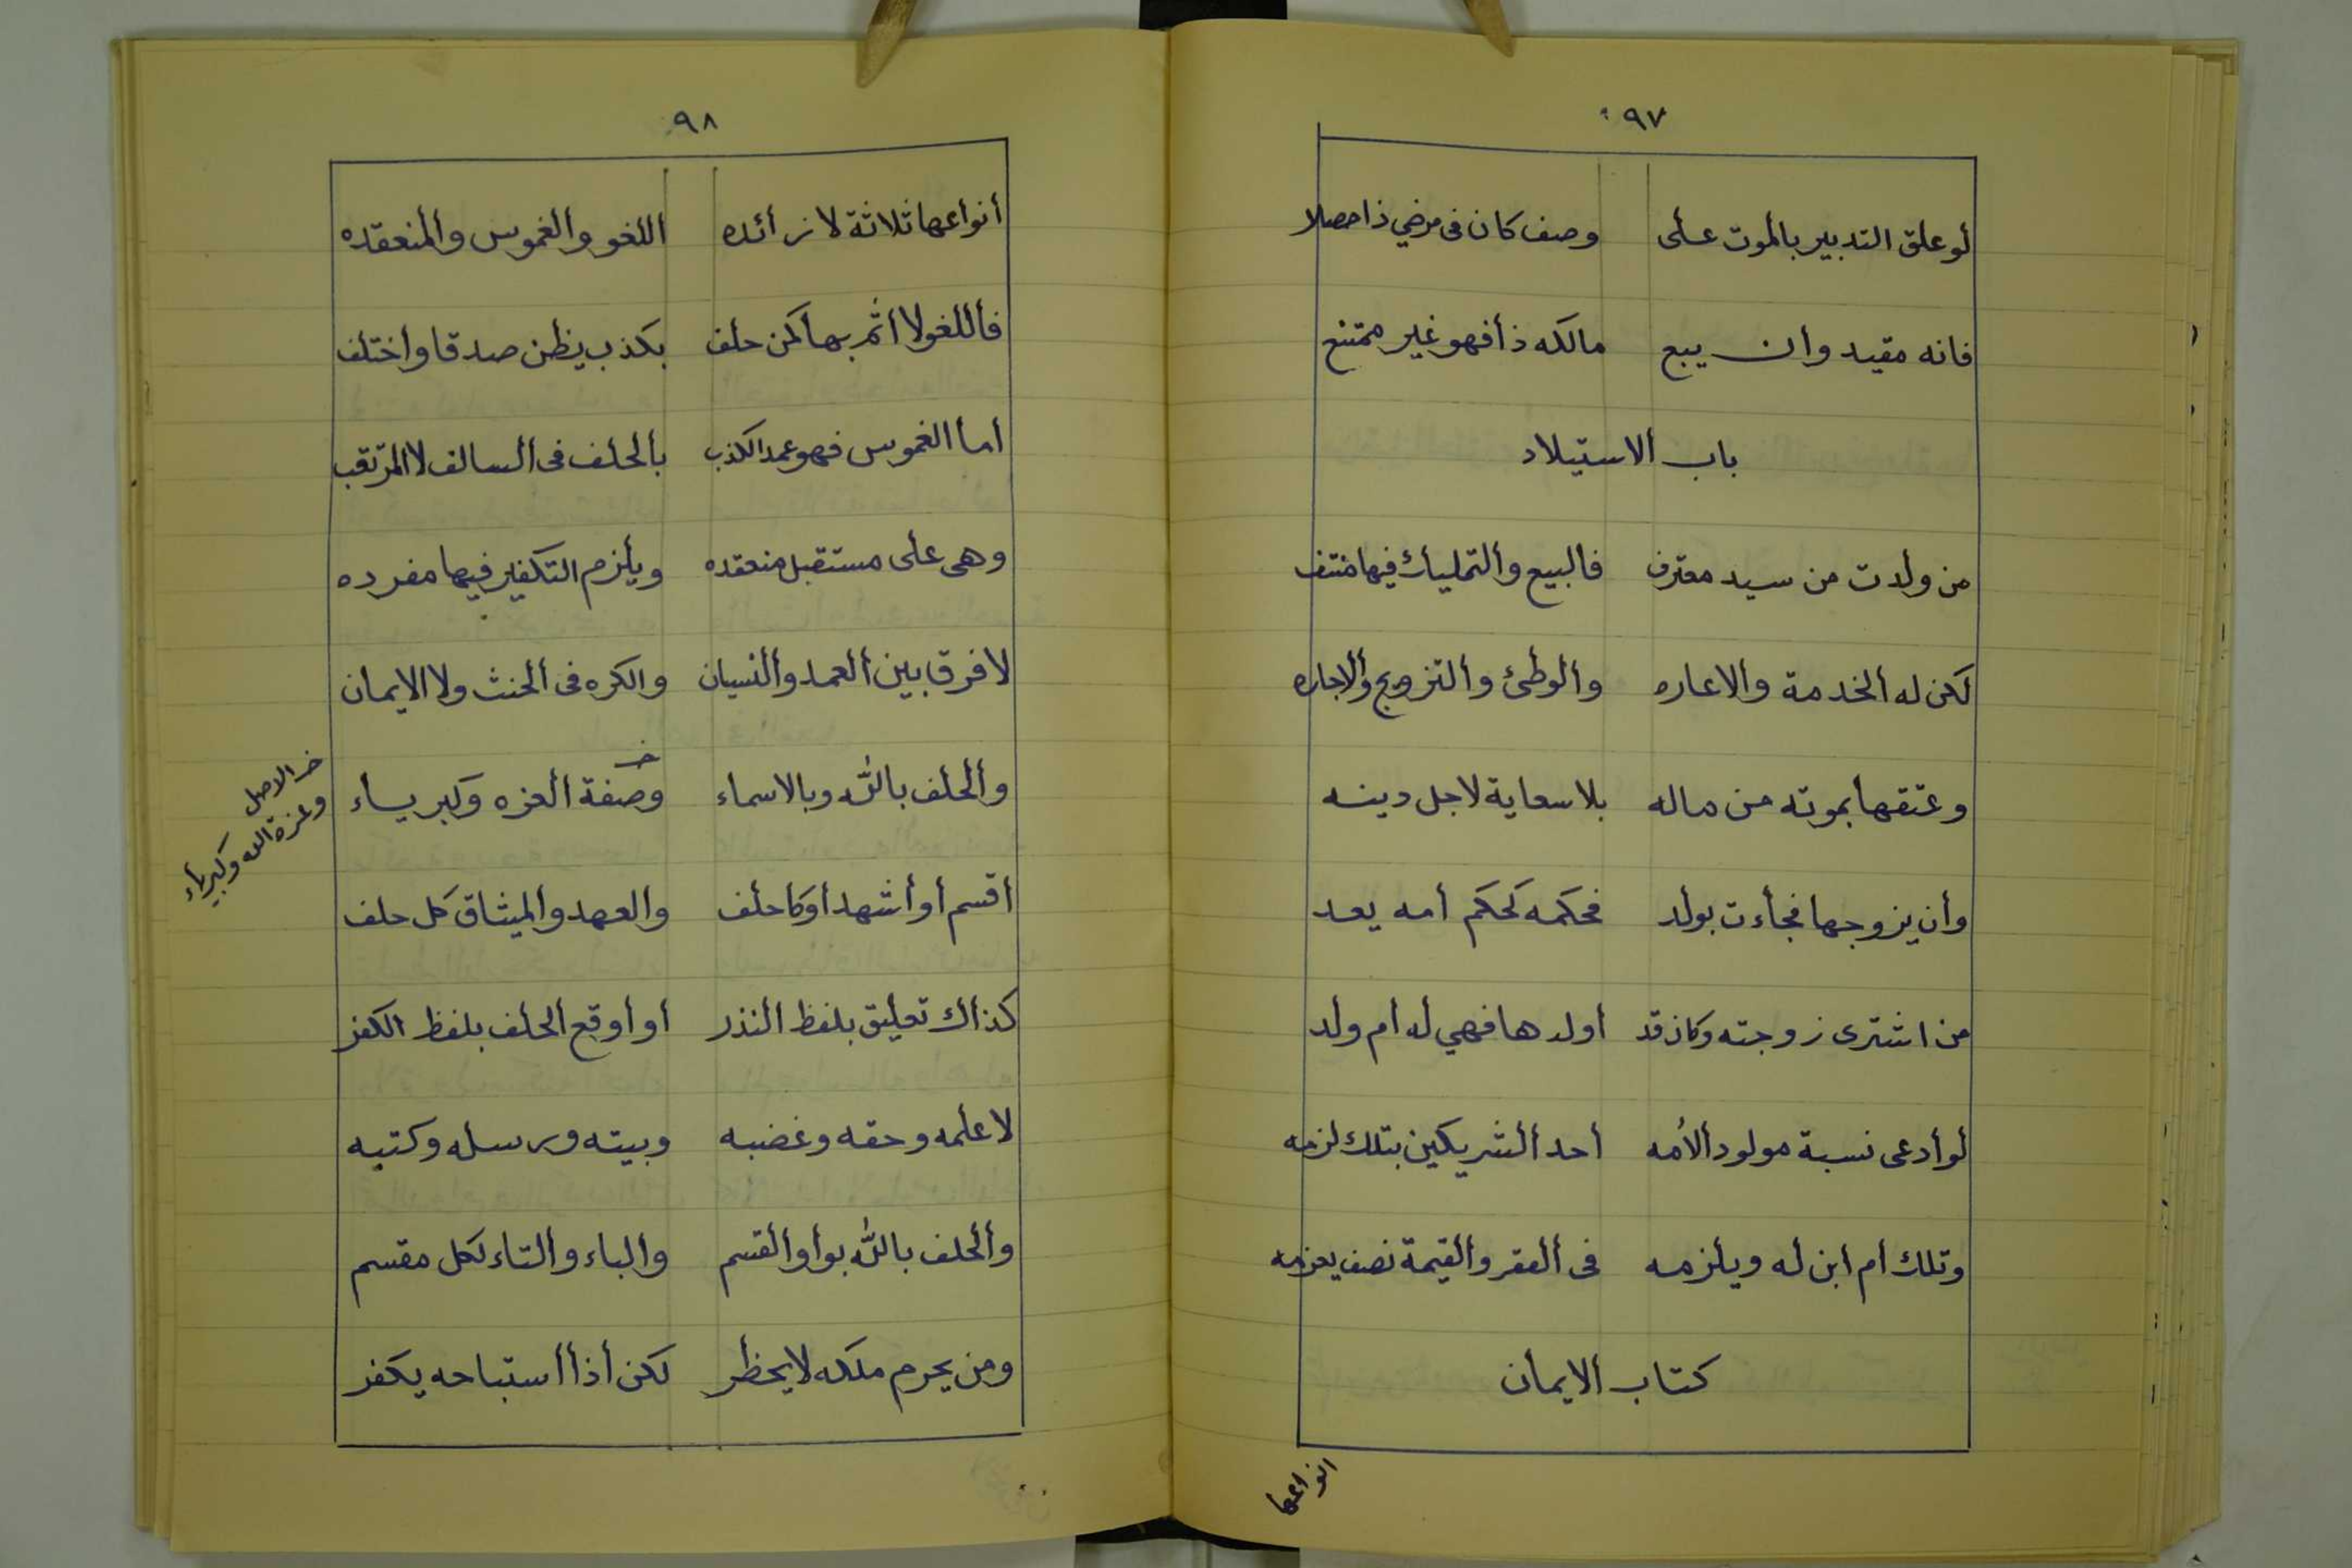 ٩٧
لو علق التدبير بالموت على وصف كان فى مرضي ذا حصلا
فانه مقيد وان يبع مالكه ذا فهو غير ممتنع
باب الاستيلاد
من ولدت من سيد معترف فالبيع والتمليك فيها منتف
لكن له الخدمة والاعاره والوطئ والتزويج والاجاره
وعتقها بموته من ماله بلا سعاية لاجل دينه
وأن يزوجها فجأت بولد فحكمه كحكم أمه يعد
من اشترى زوجته وكان قد أولدها فهي له أم ولد
لو أدعى نسبة مولود الأمه أحد الشريكين بتلك لزمه
وتلك أم ابن له ويلزمه فى العقر والقيمة نصف يغرمه
كتاب الايمان
انواعها
٩٨
أنواعها ثلاثة لا زائده اللغو والغموس والمنعقده
فاللغو لا اثم بها كمن حلف بكذب يظن صدقا واختلف
أما الغموس فهو عمد الكذب بالحلف فى السالف لا المرتقب
وهى على مستقبل منعقده ويلزم التكفير فيها مفرده
لا فرق بين العمد والنسيان والكره فى الحنث ولا الايمان
والحلف بالله وبالاسماء وصفة العزه وكبرياء
خـ
خـ الاصل
وعزة الله وكبرياء
أقسم أو أشهد أو كا حلف والعهد والميثاق كل حلف
كذاك تعليق بلفظ النذر او أوقع الحلف بلفظ الكفر
لا علمه وحقه وغضبه وبيته ورسله وكتبه
والحلف بالله بواو القسم والباء والتاء لكل مقسم
ومن يحرم ملكه لا يحظر لكن أذا أستباحه يكفر